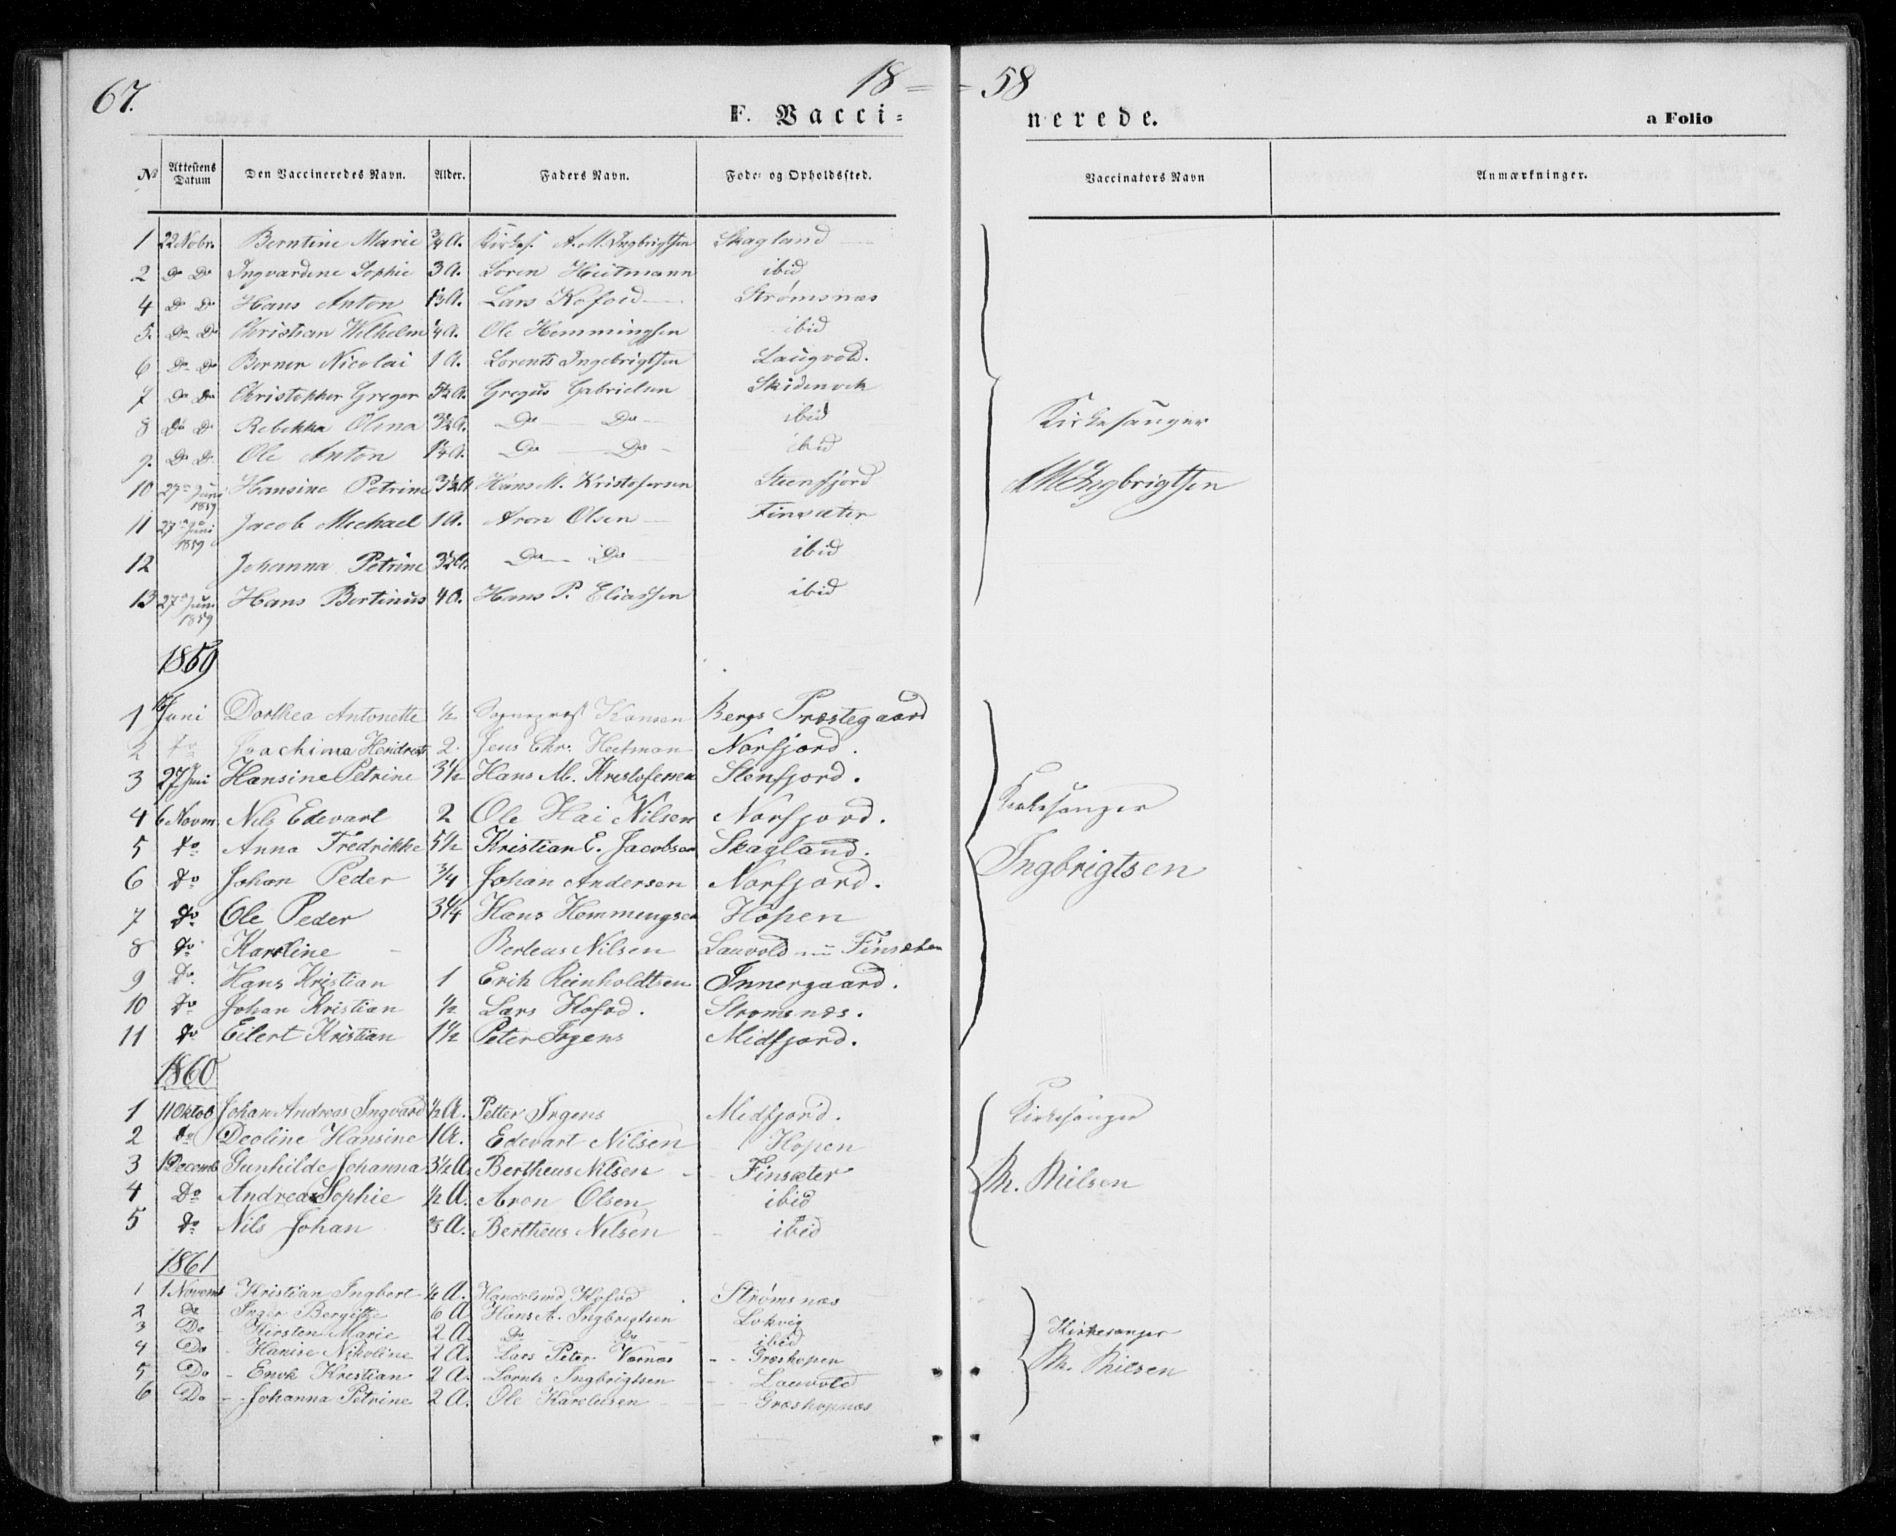 67.
18 = = 58
F. Vacci= nerede. a Folio
No Attestens Datum Den Vaccineredes Navn. Alder. Faders Navn. Føde- og Opholdssted. Vaccinators Navn Anmærkninger.
1 22 Nobr. Berntine Marie 3/4 A. Kirkes. A. M. Ingbrigtsen Skagland
2 Do Do Ingvardine Sophie 3 A. Soren Heitmann ibid
4 Do Do Hans Anton A. Lars Kofoed Strømsnæs
5. Do Do Christian Wilhelm 1/4 A. Ole Hemmingsen ibid
6 Do Do Berner Nicolai 1 A. Lorents Ingebrigtsen Laugvold.
7 Do Do Christopher Greger 5 1/2 A. Gregus Gabrielsen
8 Do Do Rebekka Olena 3 1/2 A. Do Do ibid
Kirkesanger
9. Do Do Ole Anton A. Do Do ibid
10 27de Juni 1859 Hansine Petrine 3 1/2 A. Hans M. Kristofersen Steensfjord
AM Ingbrigtsen
11 27de Juni 1859 Jacob Mechael 1 A. Aron Olsen Finsæter
12 Johanna Petrine 3 1/2 A. Do Do ibid
13 27de Juni 1859 Hans Bertinus 4 A. Hans P. Eliassen ibid
1859
1 Juni Dorthea Antonette 1/2 Sognepræst Hansen Bergs Præstegaard
2 Do Joachima Hendrest 2. Jens Chr. Heetman Norfjord.
3 27 Juni Hansine Petrine 3 1/2 Hans M. Krestofersen Stenfjord.
4 6 Novm. Nils Edevart 2 Ole Hai Nilsen Norfjord.
Kirkesanger
5 Do Anna Fredrikke 5 1/2 Kristian E. Jacobsen Skagland.
Ingbrigtsen
6 Do Johan Peder 3/4 Johan Andersen Norfjord.
7 Do Ole Peder 3 1/4 Hans Hemmingsen Hopen
8 Do Karoline Berteus Nilsen Lauvold Finsæter
9 Do Hans Kristian 1 Erik Reinholdtsen Innergaard.
10 Do Johan Kristian 1/2 Lars Hofod. Stromsnæs.
11 Do Eilert Kristian 1 1/2 Peter Irgens Midfjord.
1860
1 11 Oktob Johan Andreas Ingvard 1/2 A. Petter Irgens Midfjord.
Kirkesanger
2 Do Deoline Hansine 1 A. Edevart Nilsen Hopen
3 1 Decemb Gunhilde Johanna 3 1/2 A. Bertheus Nilsen Finsæter
M. Nilsen
4 Do Andrea Sophie 1/2 A. Aron Olsen ibid
5 Do Nils Johan A. Bertheus Nilsen ibid
1861
1 1 Novemb Kristian Ingbert 1/2 A. Handelsmd Hofod Strømsnæs
2 Do Inger Bergitte 6 A Hans A. Ingbrigtsen Lokvig
3 Do Kirsten Marie 2 A. Do Do ibid
Kirkesanger
4 Do Hanise Nikoline 2 A. Lars Peter Varnæs Græshopen
M. Nilsen
5 Do Enok Krestian 2 A. Lornts Ingbrigtsen Lauvold
6 Do Johanna Petrine 2 A. Ole Karelusen Græshopnæs